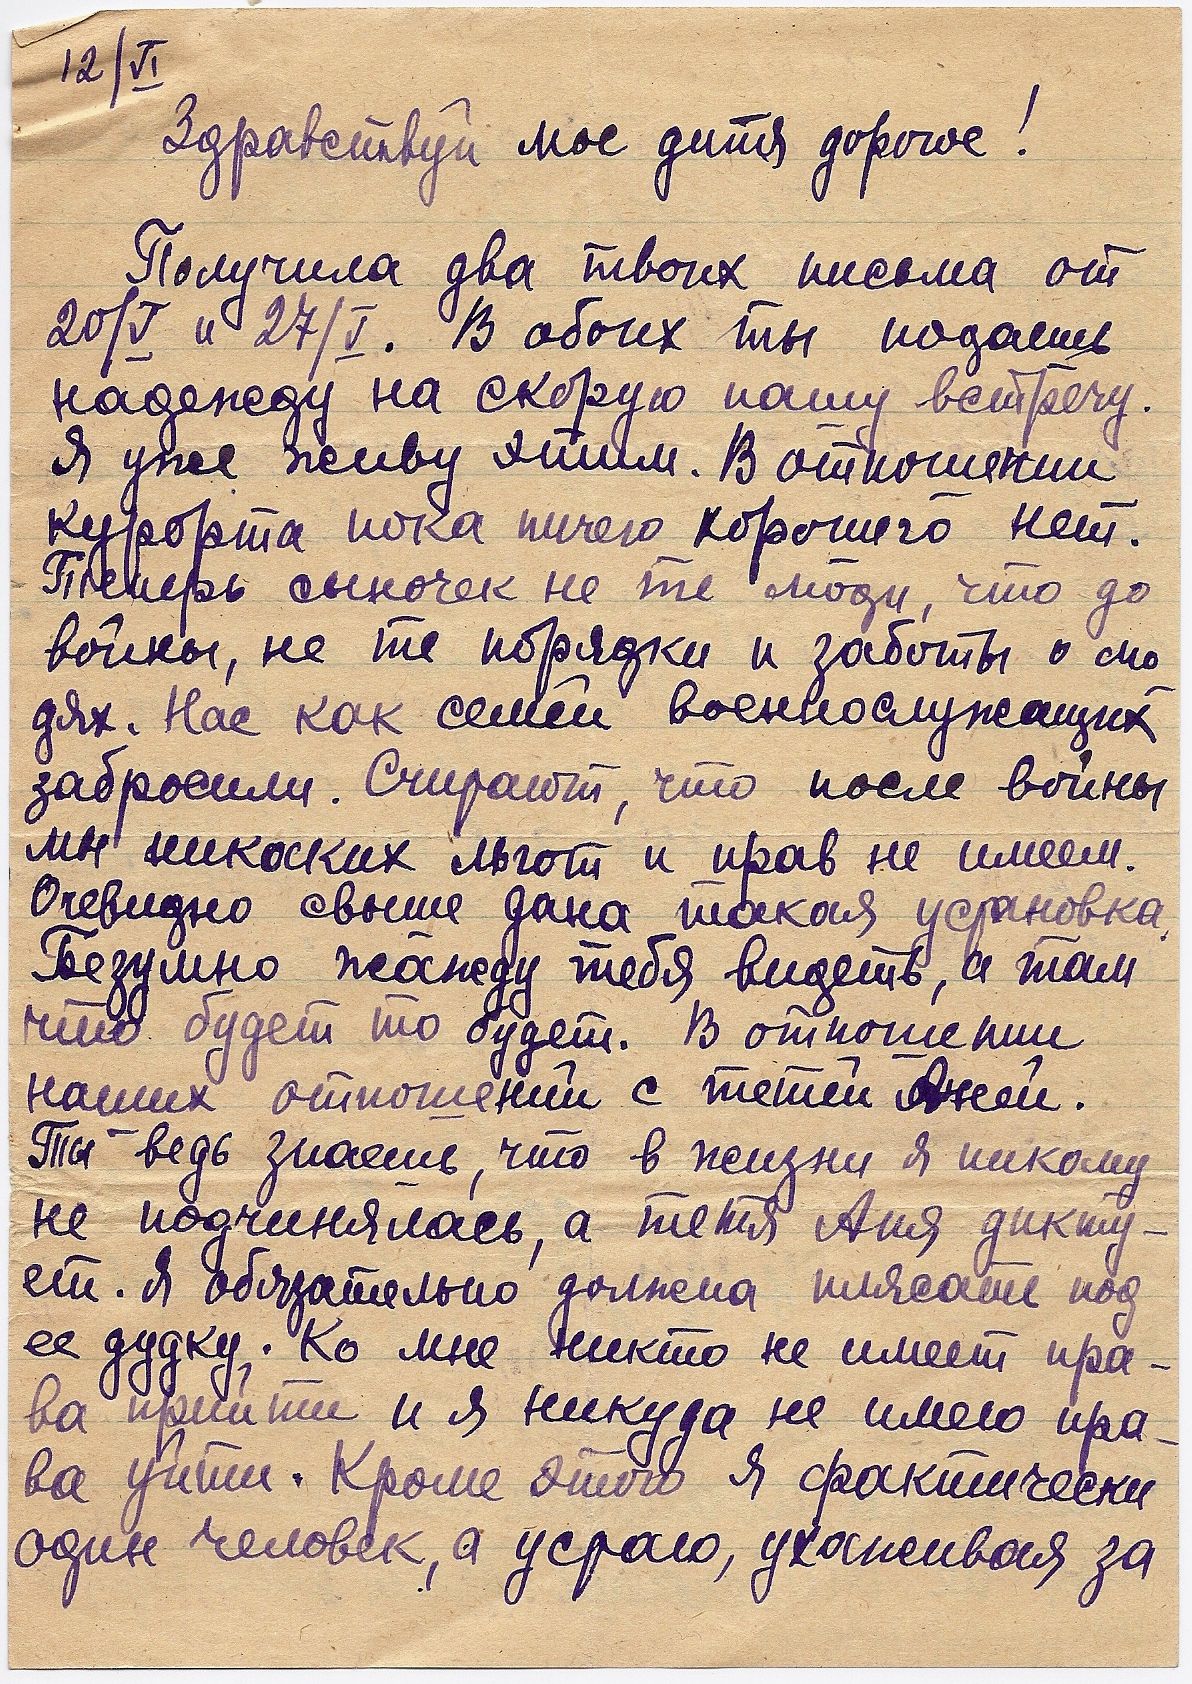 12/VI
Здравствуй мое дитя дорогое!
Получила два твоих письма от
20/V и 27/V. В обоих ты подаешь
надежду на скорую нашу встречу.
Я уже живу этим. В отношении
курорта пока ничего хорошего нет.
Теперь сыночек не те люди, что до
войны, не те порядки и заботы о лю
дях. Нас как семей военнослужащих
забросили. Считают, что после войны
мы никаких льгот и прав не имеем.
Очевидно свыше дана такая установка.
Безумно жажду тебя видеть, а там
что будет то будет. В отношении
наших отношений с тетей Аней.
Ты ведь знаешь, что в жизни я никому
не подчинялась, а тетя Аня дикту-
ет. Я обязательно должна плясать под
ее дудку. Ко мне никто не имеет пра-
ва прийти и я никуда не имею пра-
ва уйти. Кроме этого я фактически
один человек, а устаю, ухаживая за